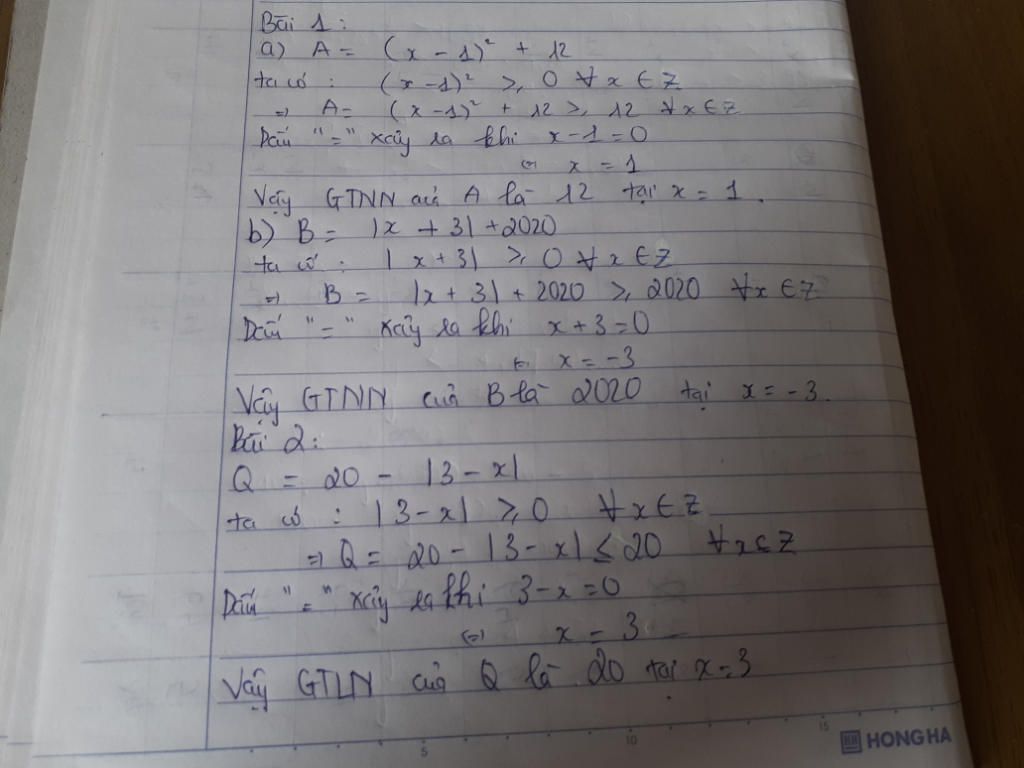 Bài 1:
a) A = (x - 1)² + 12
ta có : (x - 1)² ≥ 0 ∀ x ∈ Z
=> A = (x - 1)² + 12 ≥ 12 ∀x ∈ Z
Dấu "=" xảy ra khi x - 1 = 0
<=> x = 1
Vậy GTNN của A là 12 tại x = 1.
b) B = |x + 3| + 2020
ta có : |x + 3| ≥ 0 ∀ x ∈ Z
=> B = |x + 3| + 2020 ≥ 2020 ∀x ∈ Z
Dấu "=" xảy ra khi x + 3 = 0
<=> x = -3
Vậy GTNN của B là 2020 tại x = -3.
Bài 2:
Q = 20 - |3 - x|
ta có : |3 - x| ≥ 0 ∀ x ∈ Z
=> Q = 20 - |3 - x| ≤ 20 ∀x ∈ Z
Dấu "=" xảy ra khi 3 - x = 0
<=> x = 3
Vậy GTLN của Q là 20 tại x = 3
5 10 15
HONG HA